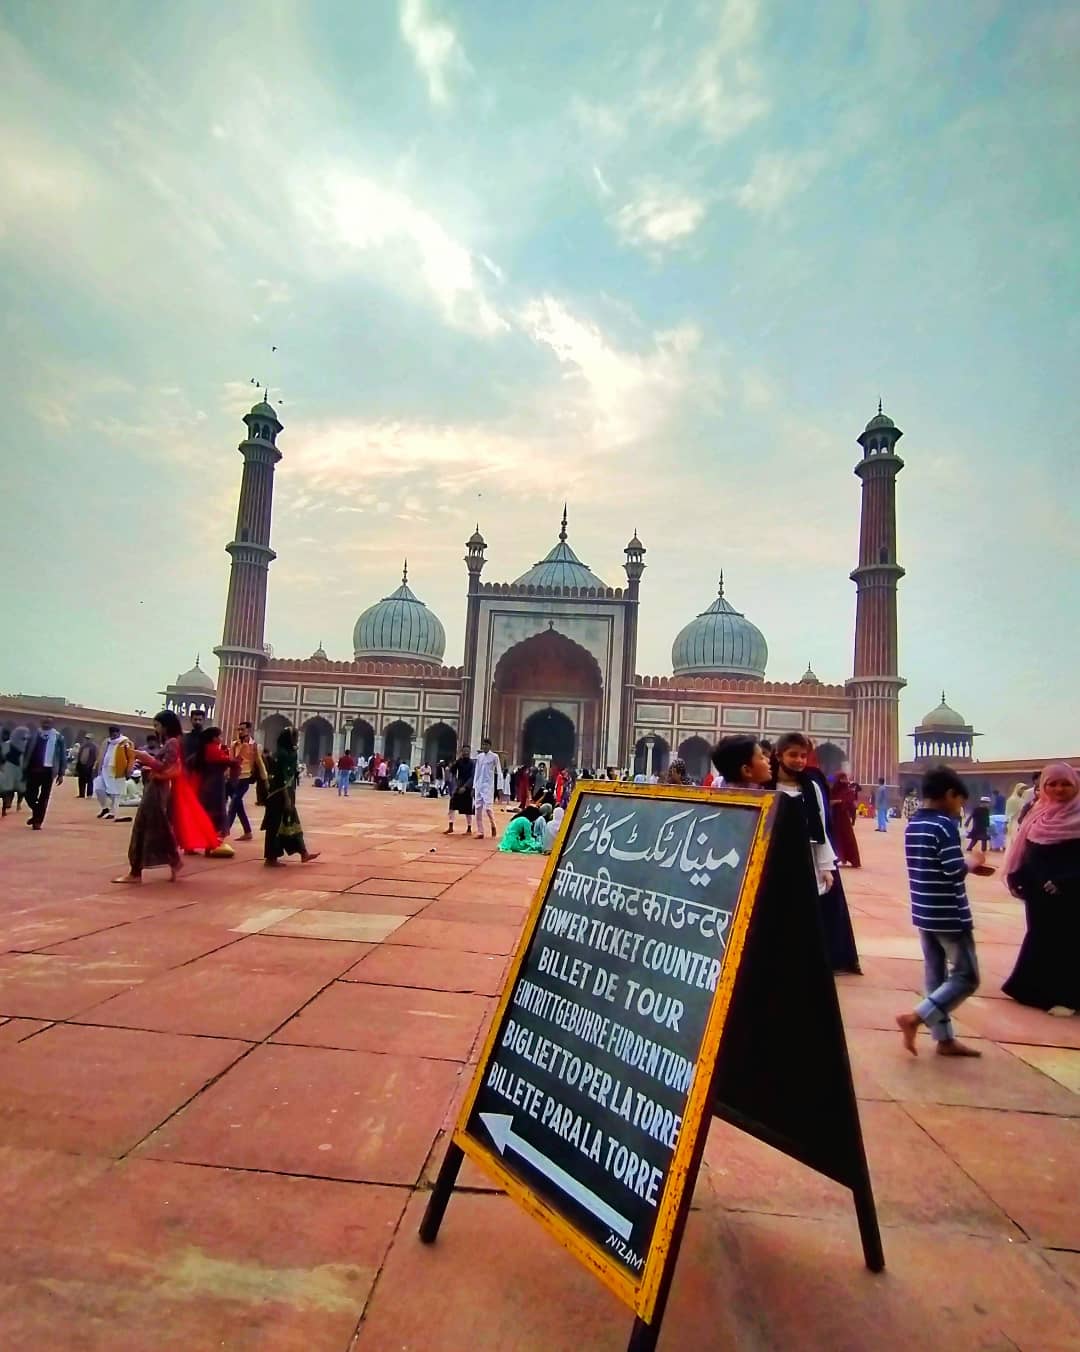 مینار ٹکٹ کاؤنٹر
मीनार टिकट काउन्टर
TOWER TICKET COUNTER
BILLET DE TOUR
EINTRITTGEBUHRE FURDENTURM
BIGLIETTO PER LA TORRE
BILLETE PARA LA TORRE
NIZAM